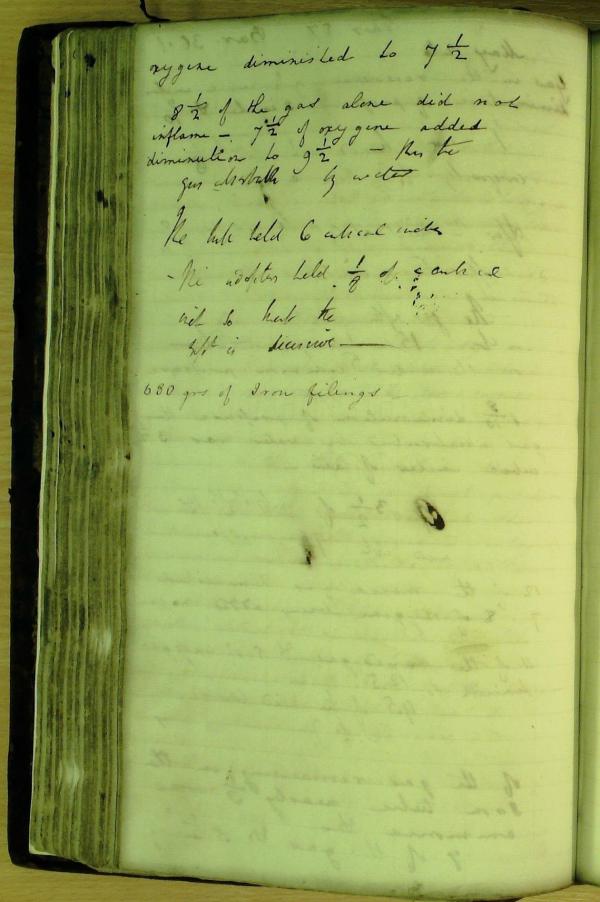 oxygene diminished to 7 1/2
8 1/2 of the gas alone did not
inflame - 7 1/2 of oxygene added
diminution to 9 1/2 - this the
gas by water
The tube held 6 cubical inches
- The adopters held 1/8 of a cubical
inch so that the
is decisive —
630 grs of Iron filings